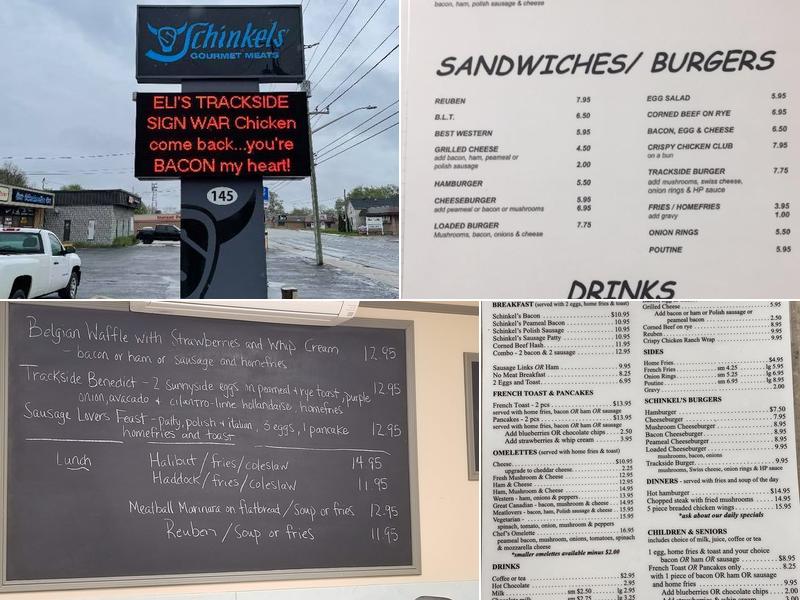 Schinkels
GOURMET MEATS
ELI'S TRACKSIDE
SIGN WAR Chicken
come back...you're
BACON my heart!
145
bacon, ham, polish sausage & cheese
SANDWICHES/ BURGERS
REUBEN 7.95
B.L.T. 6.50
BEST WESTERN 5.95
GRILLED CHEESE 4.50
add bacon, ham, peameal or
polish sausage 2.00
HAMBURGER 5.50
CHEESEBURGER 5.95
add peameal or bacon or mushrooms 6.95
LOADED BURGER 7.75
Mushrooms, bacon, onions & cheese
EGG SALAD 5.95
CORNED BEEF ON RYE 6.95
BACON, EGG & CHEESE 6.50
CRISPY CHICKEN CLUB 7.95
on a bun
TRACKSIDE BURGER 7.75
add mushrooms, swiss cheese,
onion rings & HP sauce
FRIES / HOMEFRIES 3.95
add gravy 1.00
ONION RINGS 5.50
POUTINE 5.95
DRINKS
Belgian Waffle with Strawberries and Whip Cream 12.95
- bacon or ham or sausage and homefries
Trackside Benedict - 2 sunnyside eggs on peameal + rye toast, purple 12.95
onion, avocado + cilantro-lime hollandaise, homefries
Sausage Lovers Feast - patty, polish + italian, 3 eggs, 1 pancake 12.95
homefries and toast
Lunch
Halibut/fries/coleslaw 14.95
Haddock/fries/coleslaw 11.95
Meatball Marinara on flatbread/soup or fries 12.95
Reuben/Soup or fries 11.95
BREAKFAST (served with 2 eggs, home fries & toast)
Schinkel's Bacon $10.95
Schinkel's Peameal Bacon 10.95
Schinkel's Polish Sausage 10.95
Schinkel's Sausage Patty 10.95
Corned Beef Hash 11.95
Combo - 2 bacon & 2 sausage 12.95
Sausage Links OR Ham 9.95
No Meat Breakfast 8.25
2 Eggs and Toast 6.95
FRENCH TOAST & PANCAKES
French Toast - 2 pcs $13.95
served with home fries, bacon OR ham OR sausage
Pancakes - 2 pcs $13.95
served with home fries, bacon OR ham OR sausage
Add blueberries OR chocolate bits 2.50
Add strawberries & whip cream 3.95
OMELETTES (served with home fries & toast)
Cheese $10.95
upgrade to cheddar cheese 2.25
Fresh Mushroom & Cheese 12.95
Ham & Cheese 12.95
Ham, Mushroom & Cheese 14.95
Western - ham, onions & peppers 13.95
Great Canadian - bacon, mushroom & cheese 14.95
Meatlovers - bacon, ham, Polish sausage & cheese 15.95
Vegetarian - 15.95
spinach, tomato, onion, mushroom & peppers
Chef's Omelette 16.95
peameal bacon, mushroom, onions, tomatoes, spinach
& mozzarella cheese
*smaller omelettes available minus $2.00
DRINKS
Coffee or tea $2.95
Hot Chocolate 2.95
Milk sm $2.50 lg 2.95
Chocolate milk sm $2.75 lg 3.25
Grilled Cheese 5.95
Add bacon or ham or Polish sausage or
peameal bacon 2.50
Corned Beef on rye 8.95
Reuben 9.95
Crispy Chicken Ranch Wrap 9.95
SIDES
Home Fries $4.95
French Fries sm 4.25 lg 5.95
Onion Rings sm 5.25 lg 6.95
Poutine sm 6.95 lg 8.95
Gravy 2.00
SCHINKEL'S BURGERS
Hamburger $7.50
Cheeseburger 7.95
Mushroom Cheeseburger 8.95
Bacon Cheeseburger 8.95
Peameal Cheeseburger 8.95
Loaded Cheeseburger 9.95
mushrooms, bacon, onions
Trackside Burger 9.95
mushrooms, Swiss cheese, onion rings & HP sauce
DINNERS - served with fries and soup of the day
Hot hamburger $14.95
Chopped steak with fried mushrooms 14.95
5 piece breaded chicken wings 15.95
*ask about our daily specials
CHILDREN & SENIORS
includes choice of milk, juice, coffee or tea
1 egg, home fries & toast and your choice
bacon OR ham OR sausage $8.95
French Toast OR Pancakes only 8.25
with 1 piece of bacon OR ham OR sausage
and home fries 9.95
Add blueberries OR chocolate bits 2.00
Add strawberries & whip cream 3.00